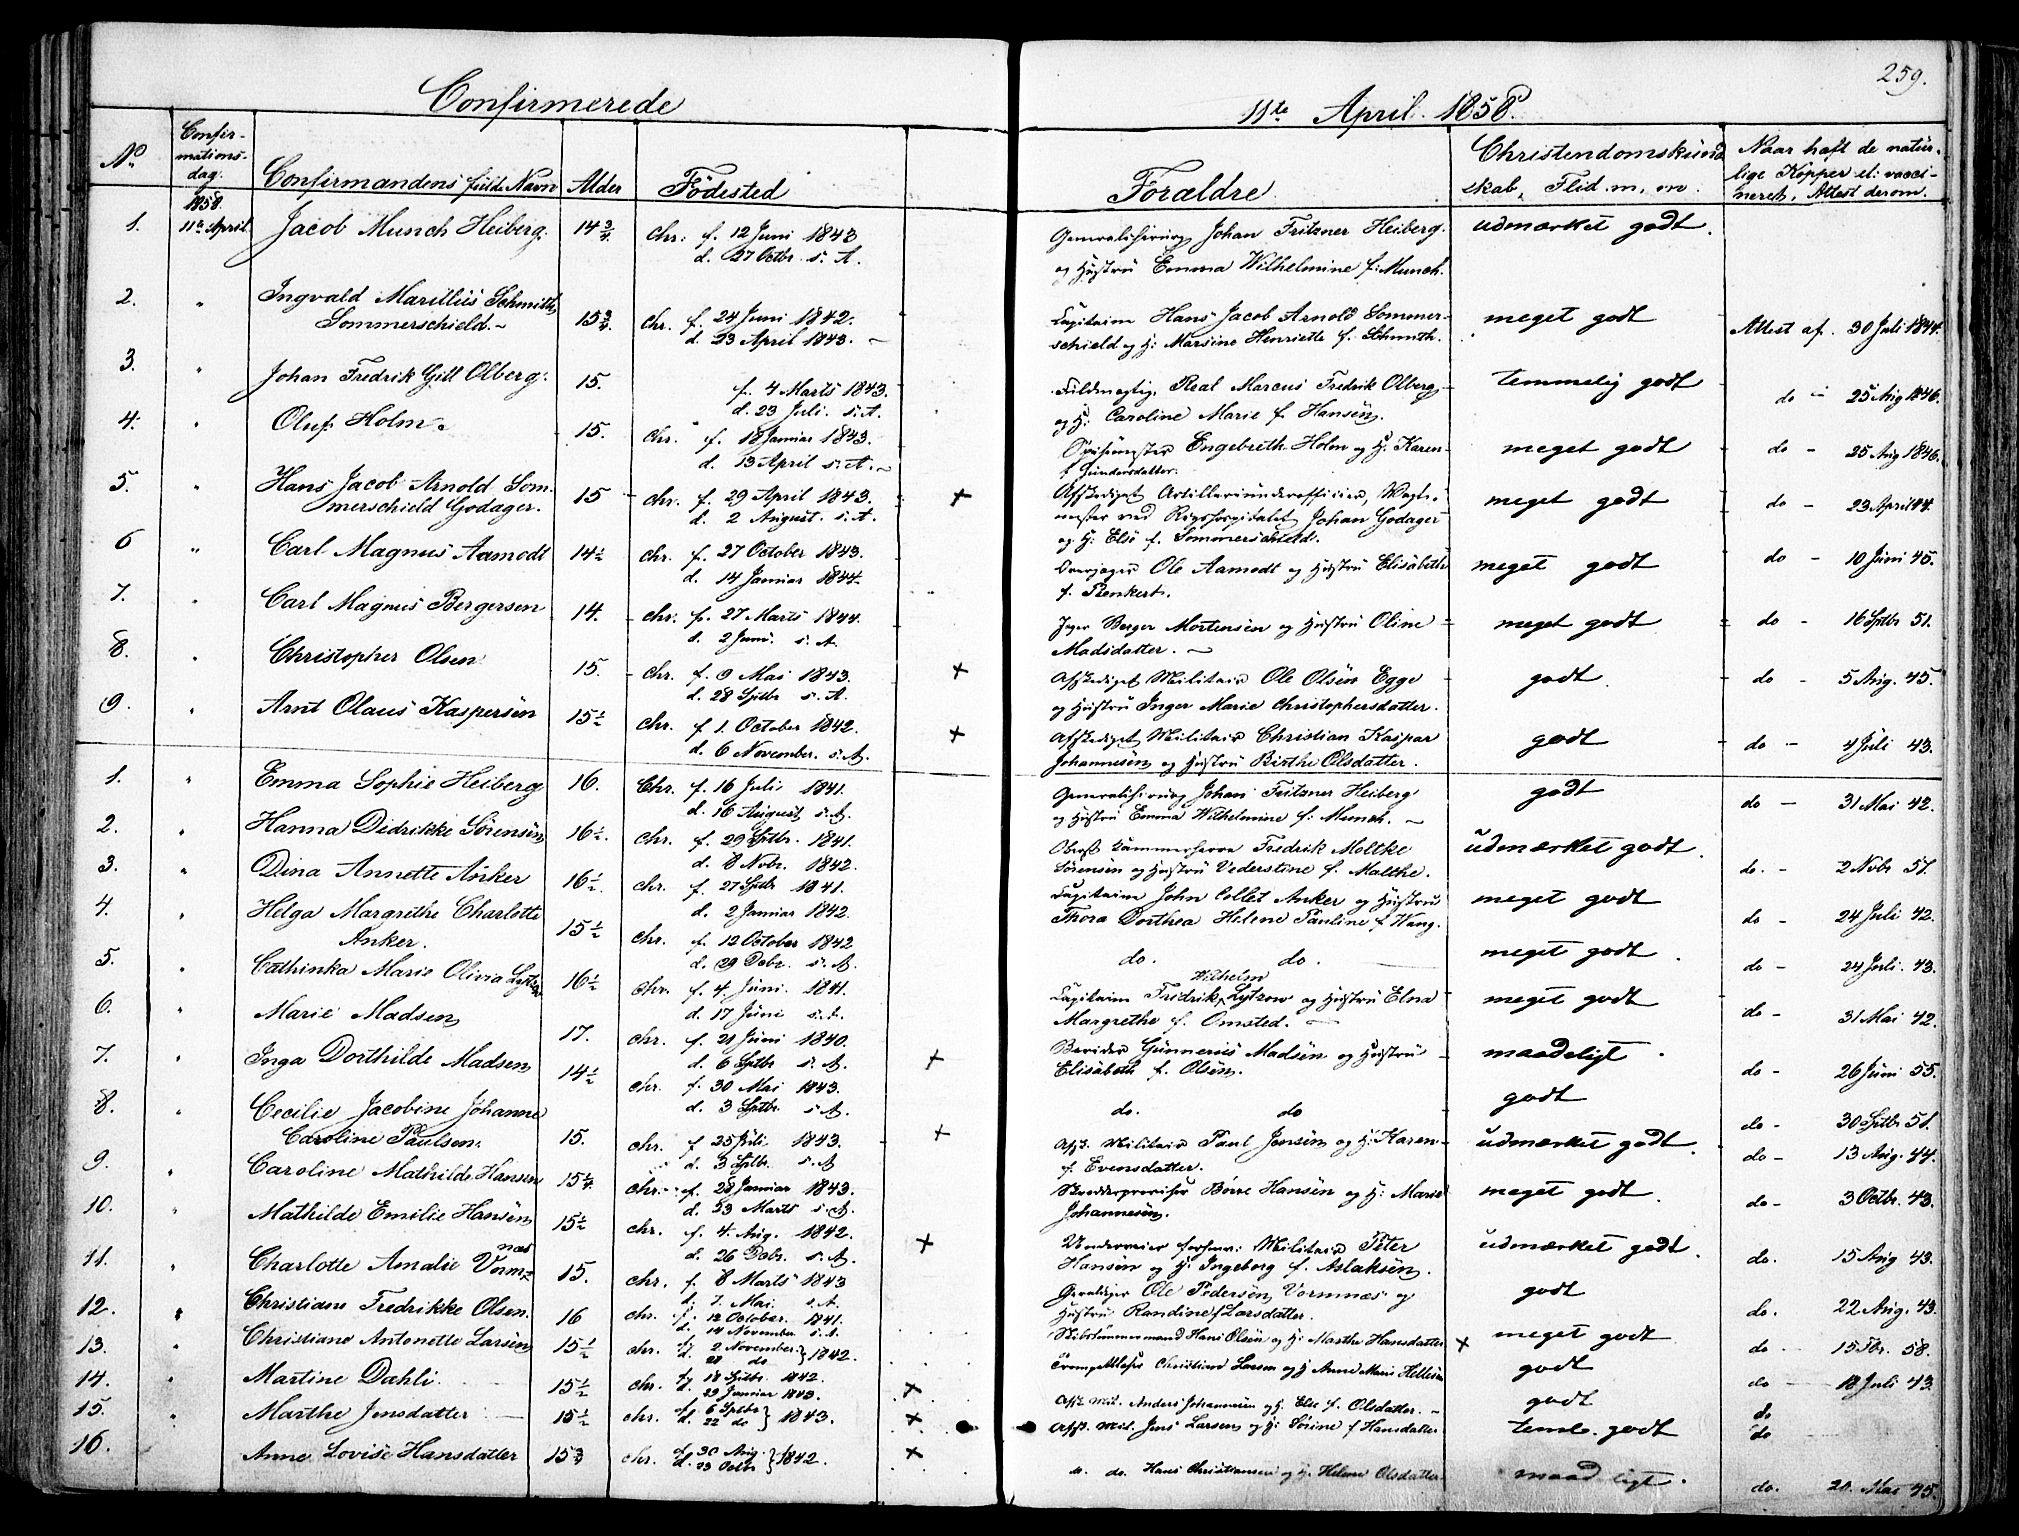 259.
Confirmerede
11te April. 1858.
No Confirmationsdag. Confirmandens fulde Navn Alder Födested Forældre Christendomskundskab, Flid. m. m. Naar haft de naturlige Kopper el. vaccineret, Attest derom.
1858.
1. 11te April Jacob Munch Heiberg. 14 3/4 Chr. f. 12 Juni 1843 Johan Fritzner Heiberg. udmærket godt.
d. 27 Octbr. s. A. og Hustru Emma Wilhelmine f. Munch.
2. " Ingvald Marillius Schmith
Sommerschield. 15 3/4. Chr. f. 24 Juni 1842. Capitain Hans Jacob Arnold Sommer- meget godt Attest af 30 Juli 1844.
d. 23 April 1843. schield og H. Marsine Henriette f. Schmith.
3. " Johan Fredrik Gill Olberg. 15. f. 4 Marts 1843. Fuldmægtig, Real Marcus Fredrik Olberg temmelig godt do 25 Aug 1846.
d. 23 Juli. s. A. og H. Caroline Marie f. Hansen.
4. " Oluf Holm. 15. Chr. f. 18 Januar 1843. Engebreth Holm og H. Karen meget godt do 25 Aug 1846.
d. 13 April s. A. f. Gundersdatter.
5. " Hans Jacob Arnold Som- 15 Chr. f. 29 April 1843. + Afskediget Artilleriunderofficier, Vagt- meget godt do 23 April 44.
merschield Godager. d. 2 August. s. A. mester ved Rigshospitalet Johan Godager
og H. Else f. Sommerschield.
6 " Carl Magnus Aamodt 14 1/2 Chr. f. 27 October 1843. Ole Aamodt og Hustru Elisabeth meget godt do 10 Juni 45.
d. 14 Januar 1844. f. Renkert.
7. " Carl Magnus Bergersen 14. Chr. f. 27 Marts 1844. Jæger Berger Mortensen og Hustru Oline meget godt do 16 Sptbr 51.
d. 2 Juni. s. A. Madsdatter.
8. " Christopher Olsen 15. Chr. f. 9 Mai 1843. + Afskediget Militair Ole Olsen Egge godt do 5 Aug. 45.
d. 28 Sptbr s. A. og Hustru Inger Marie Christophersdatter.
9. " Arnt Olaus Kaspersen 15 1/2 Chr. f. 1. October 1842. + Afskediget Militair Christian Kaspar godt do 4 Juli 43.
d. 6 November. s. A. Johannesen og Hustru Birthe Olsdatter.
1. " Emma Sophie Heiberg 16. Chr. f. 16 Juli 1841. Johan Fritzner Heiberg godt do 31 Mai 42.
d. 16 August s. A. og Hustru Emma Wilhelmine f. Munch.
2. " Hanna Didrikke Sörensen 16 1/2. Chr. f. 29 Sptbr. 1841. Oberst Kammerherre Fredrik Moltke udmærket godt. do. 2 Novbr 51.
d. 8 Nobr. 1842. Sörensen og Hustru Vederstine f. Malthe.
3. " Dina Annette Anker 16 1/2. Chr. f. 27 Sptbr 1841. Capitain John Collet Anker og Hustru meget godt do 24 Juli 42.
d. 2 Januar 1842. Thora Dorthea Helene Pauline f. Wang.
4. " Helga Margrethe Charlotte
Anker. 15 1/2 Chr. f. 12 October 1842 do. do. meget godt do 24 Juli. 43.
d. 29 Debr. s. A.
5. " Cathinka Marie Olivia Lytzow 16 1/2 Chr. f. 4. Juni. 1841. Capitain Fredrik Wilhelm Lytzow og Hustru Elna meget godt do 31 Mai 42.
d. 17 Juni s. A. Margrethe f. Omsted.
6. " Marie Madsen 17. Chr. f. 21 Juni 1840. Gunnerius Madsen og Hustru maadeligt do 26 Juni 55.
d. 6 Sptbr s. A. Elisabeth f. Olsen.
7. " Inga Dorthilde Madsen 14 1/2 Chr. f. 30 Mai 1843. + do. do godt do 30 Sptbr 51.
d. 3 Sptbr. s. A.
8. " Cecilie Jacobine Johanne
Caroline Paulsen. 15. Chr. f 25 Juli 1843. + Afsk. Militair Paul Jensen og H. Karen udmærket godt. do 13 Aug. 44.
d. 3 Sptbr. s. A f. Evensdatter.
9. " Caroline Mathilde Hansen 15 1/4. Chr. f. 28 Januar 1843. Börre Hansen og H. Marie meget godt. do 3 Octbr. 43.
d. 23 Marts s. A. Johannesen.
10. " Mathilde Emilie Hansen 15 1/2 Chr. f. 4. Aug. 1842. + Militair Peter udmærket godt. do. 15 Aug 43.
d. 26 Debr. s. A. Hansen og H. Ingeborg f. Aslaksen.
11. " Charlotte Amalie Vormnæs 15. Chr. f. 8 Marts 1843 Ole Pedersen Vormnæs og godt do. 22 Aug. 43.
d. 7. Mai. s. A. Hustru Randine f. Larsdatter.
12. " Christiane Fredrikke Olsen. 16 Chr. f. 12 October. 1841. Skibstømmermand Hans Olsen og H. Marthe Hansdatter meget godt do 15 Fbr. 58.
d. 14 November s. A.
13. " Christiane Antonette Larsen 15 1/2 Chr. f. 2 November. } 1842. Christian Larsen og H Anne Marie Hellesen + godt do 18 Juli 43.
d. 28 do
14. " Martine Dahli 15 1/2 Chr. f. 18 Sptbr. 1842. + Afsk. Mil. Anders Johannesen og H. Else f. Olsdatter. godt do
d. 29 Januar 1843.
15. " Marthe Jensdatter 15 1/2 Chr. f. 6 Sptbr } 1843. + Afsk. Mil. Jens Larsen og H. Sörine f. Hansdatter temlig godt do
d. 22 do
16. Anne Lovise Hansdatter 15 3/4 Chr. f. 30 Aug. } 1842. + do. do. Hans Christiansen og H. Helene Olsdatter maadeligt. do. 20. Mai 45.
d. 23 Octbr